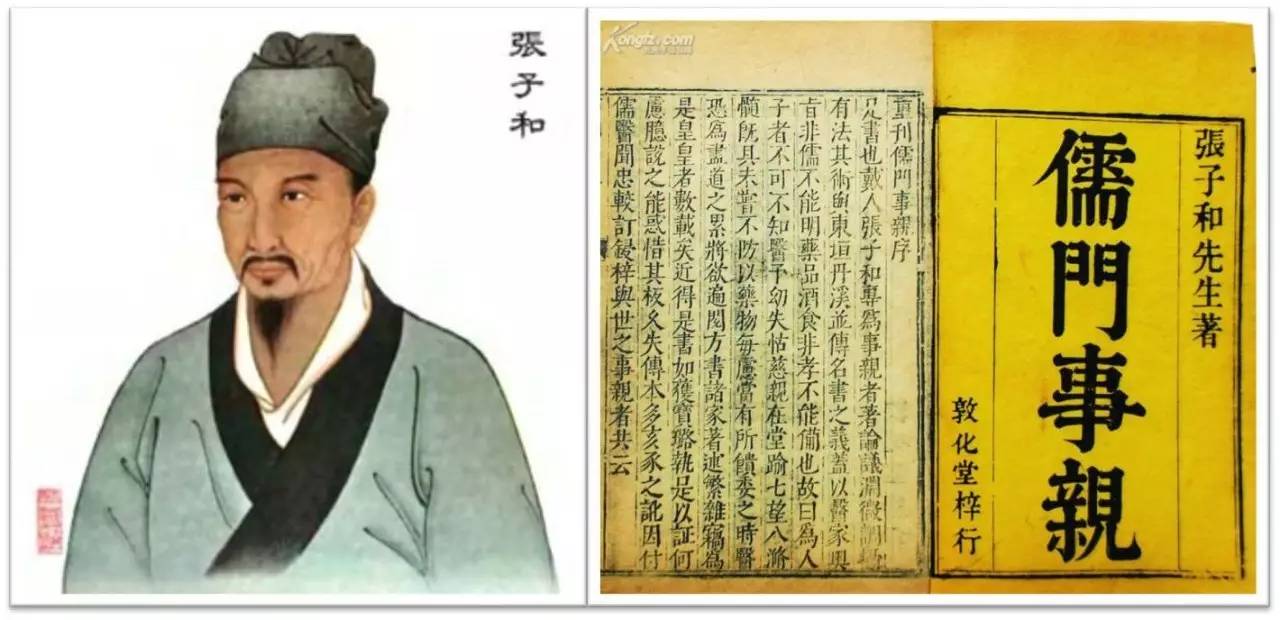 張子和
Kongfz.com
張子和先生著
儒門事親
敦化堂梓行
重刊儒門事親序
是書也戴人張子和專爲事親者著論議淵微調攝
有法其術與東垣丹溪並傳名書之義蓋以醫家奧
旨非儒不能明藥品酒食非孝不能備也故曰爲人
子者不可不知醫予幼失怙慈親在堂踰七望八滫
髓既具未嘗不防以藥物每慮當有所饋委之時醫
恐爲盡道之累將欲遍閱方書諸家著述繁雜竊爲
是皇皇者數載矣近得是書如獲寶璐執是以証何
慮臆說之能惑惜其板久失傳本多亥豕之訛因付
儒醫聞忠較訂鋟梓與世之事親者共云